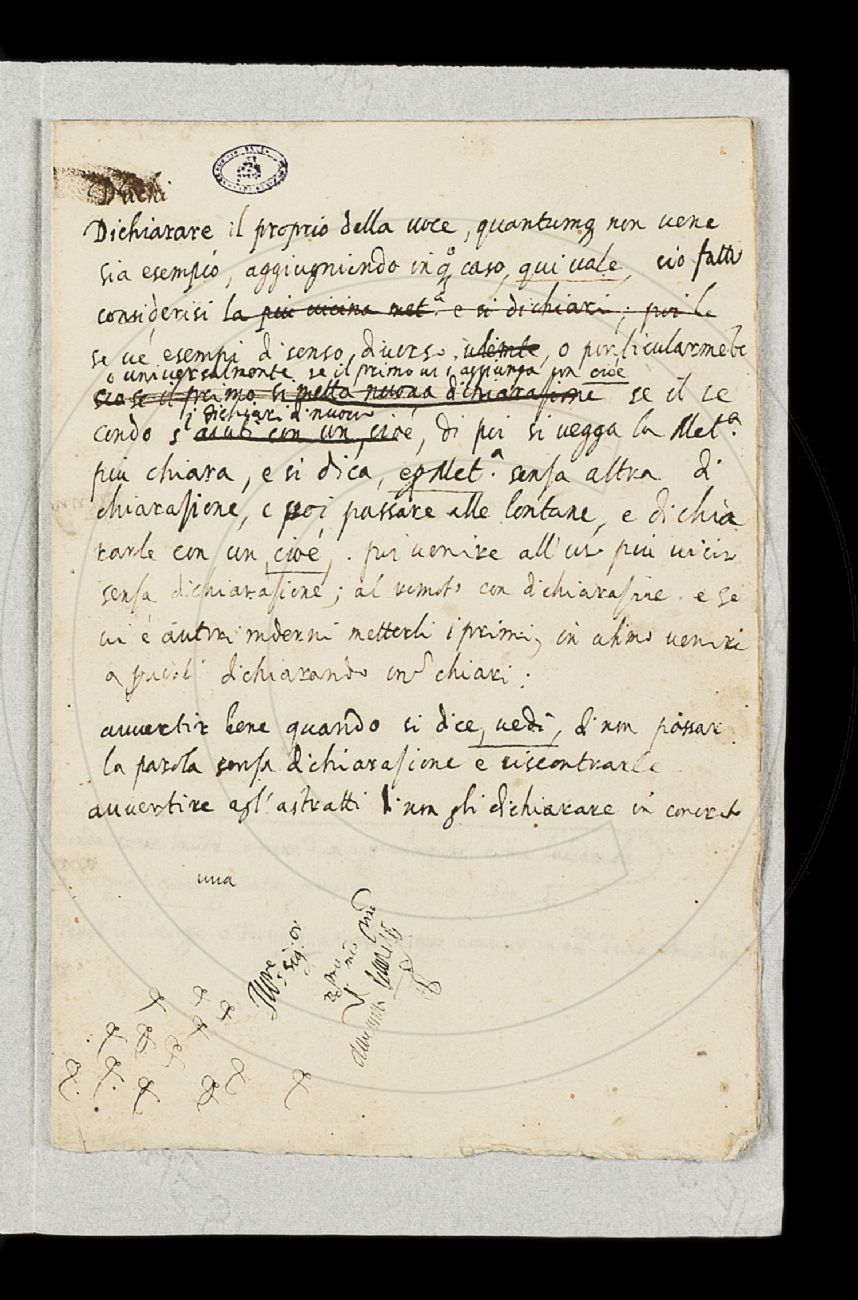 Duchi
Dichiarare il proprio della uoce, quantumq non uene
sia esempio, aggiugniendo in q.o caso, qui uale, ciò fatto
considerisi la più uicina met.a e si dichiari, poi le
se ue esempi di senso diuerso, o
o uniuersalmente se il primo ui s'aggiunga un cioè
se il primo si metta nuoua dichiarasione se il se
si dichiari di nuouo
condo s'aiuti con un, cioè, di poi si uegga la Met.a
più chiara, e si dica, e p Met.a sensa altra di
chiarasione, e poi passare alle lontane, e dichia
rarle con un, cioè, . poi uenire all' più uicin
sensa dichiarasione; al remoto con dichiarasine e se
ui è autori moderni metterli i primi, in ultimo uenire
a dichiarando chiari.
auuertir bene quando si dice, uedi, di non passar
la parola sensa dichiarasione e riscontrarle
auuertire agl'astratti di non gli dichiarare in concreto
uua
Ill.re sig.or